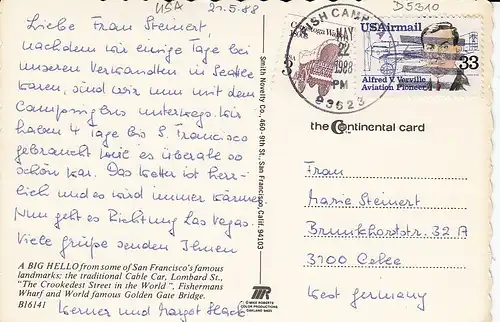 USA 21.5.88
D 5310
Liebe Frau Steinert
nachdem wir einige Tage bei
unseren Verwandten in Seattle
waren, sind wir nun mit dem
Campingbus unterwegs. Wir
haben 4 Tage bis S. Francisco
gebraucht weil es überale so
schön war. Das Wetter ist herr-
lich und es wird immer wärmer.
Nun geht es Richtung Las Vegas.
Viele grüße senden Ihnen
Werner und Margot
A BIG HELLO from some of San Francisco's famous
landmarks: the traditional Cable Car, Lombard St.,
"The Crookedest Street in the World", Fishermans
Wharf and World famous Golden Gate Bridge.
B16141
Smith Novelty Co., 460-9th St., San Francisco, Calif. 94103
TR
© MIKE ROBERTS
COLOR PRODUCTIONS
OAKLAND 94620
FISH CAMP
MAY
22
1988
PM
93623
USAirmail
33
Alfred V. Verville
Aviation Pioneer
the Continental card
Frau
Marie Steinert
Brunkhorststr. 32 A
3100 Celle
West Germany